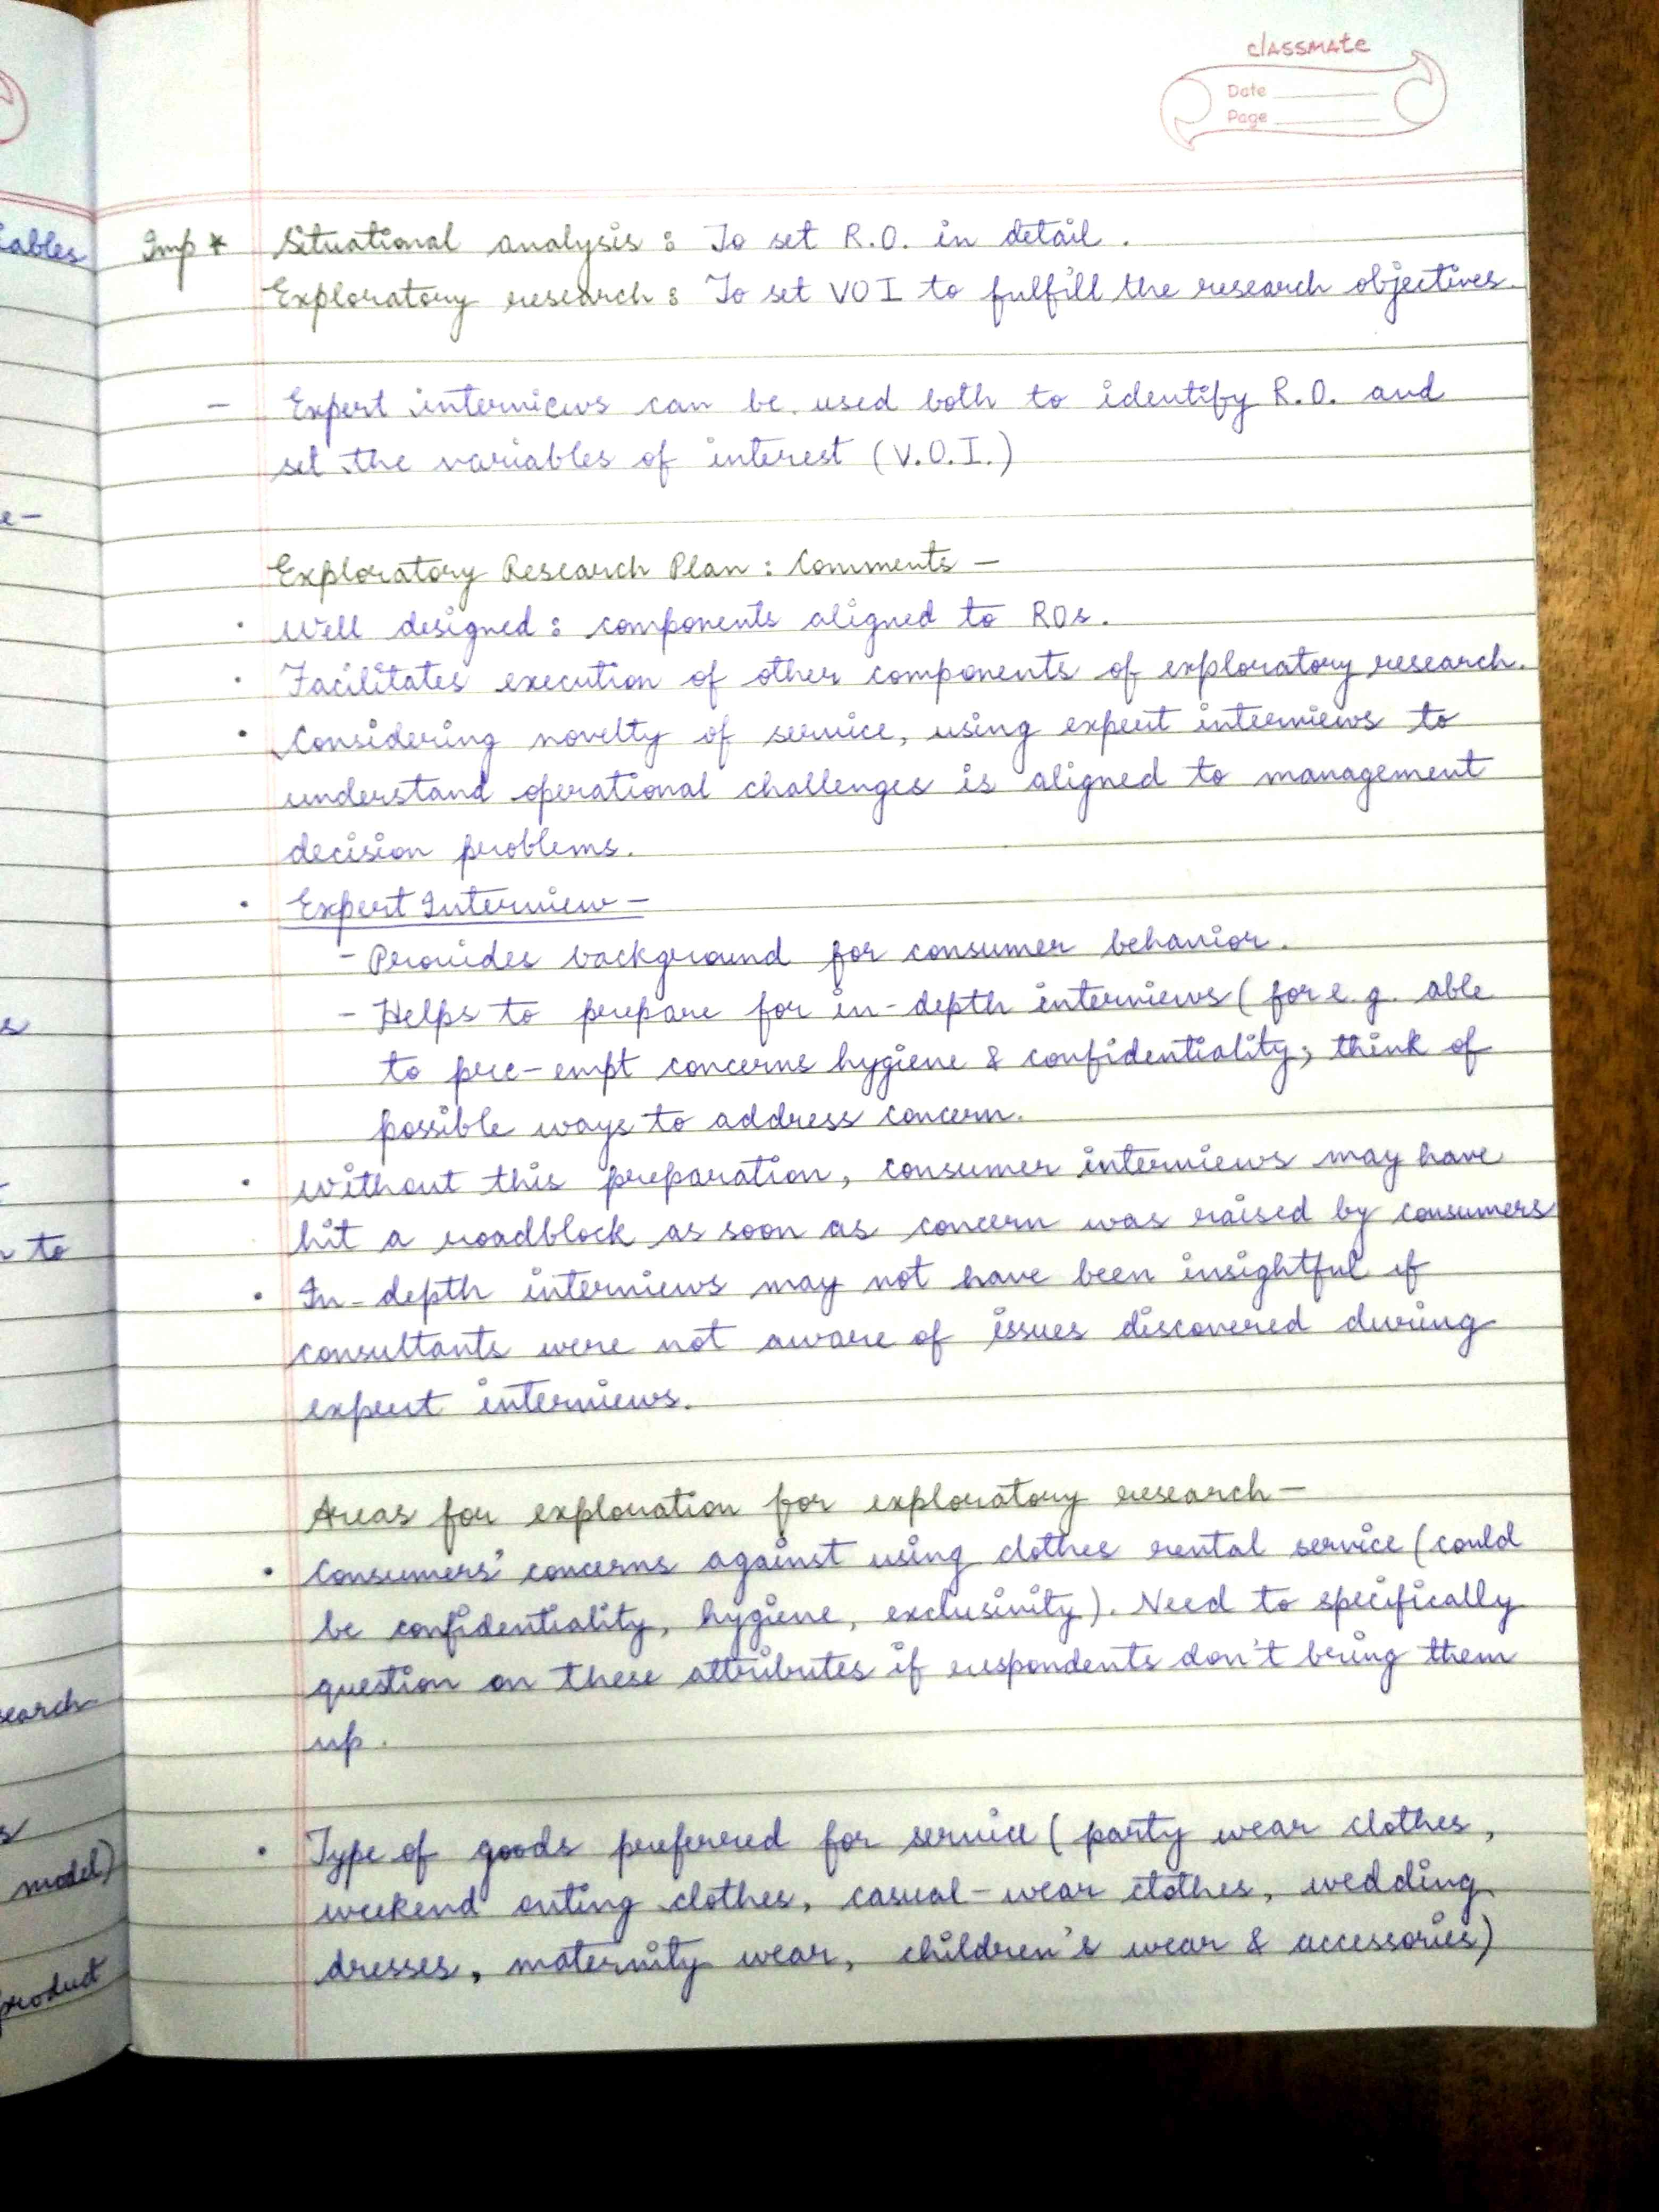 classmate
Date
Page
Imp * Situational analysis : To set R.O. in detail.
Exploratory research : To set VOI to fulfill the research objectives.
- Expert interviews can be used both to identify R.O. and
set the variables of interest (V.O.I.)
Exploratory Research Plan : Comments -
• Well designed : components aligned to ROs.
• Facilitates execution of other components of exploratory research.
• Considering novelty of service, using expert interviews to
understand operational challenges is aligned to management
decision problems.
• Expert Interview -
- Provides background for consumer behavior.
- Helps to prepare for in-depth interviews (for e.g. able
to pre-empt concerns hygiene & confidentiality; think of
possible ways to address concern.
• without this preparation, consumer interviews may have
hit a roadblock as soon as concern was raised by consumers
• In-depth interviews may not have been insightful if
consultants were not aware of issues discovered during
expert interviews.
Areas for exploration for exploratory research -
• Consumers' concerns against using clothes rental service (could
be confidentiality, hygiene, exclusivity). Need to specifically
question on these attributes if respondents don't bring them
up.
• Type of goods preferred for service (party wear clothes,
weekend outing clothes, casual-wear clothes, wedding
dresses, maternity wear, children's wear & accessories)
to
model)
product